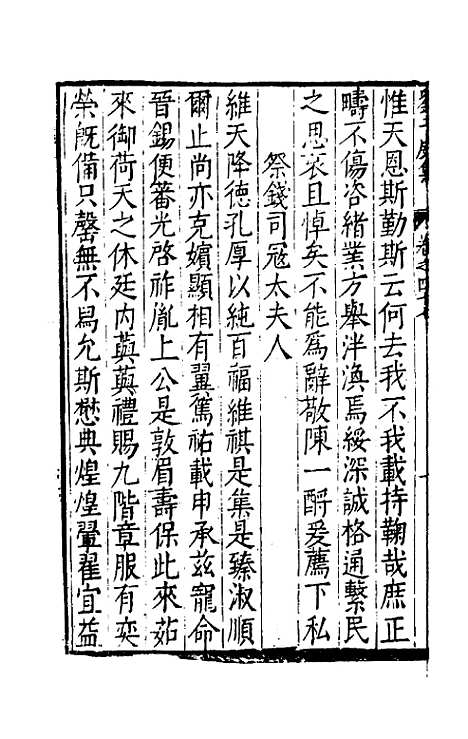 惟天恩斯勤斯云何去我不我載持鞠哉庶正
疇不傷咨緒業方舉泮渙焉綏深誠格通繫民
之思哀且悼矣不能爲辭敬陳一酹爰薦下私
祭錢司寇太夫人
維天降德孔厚以純百福維祺是集是臻淑順
爾止尚亦克嬪顯相有翼篤祐載申承兹寵命
晉錫便蕃光啓祚胤上公是敦眉壽保此來茹
來御荷天之休廷内蒖蒖禮賜九階章服有奕
榮旣備只罄無不爲允斯懋典煌煌翬翟宜益